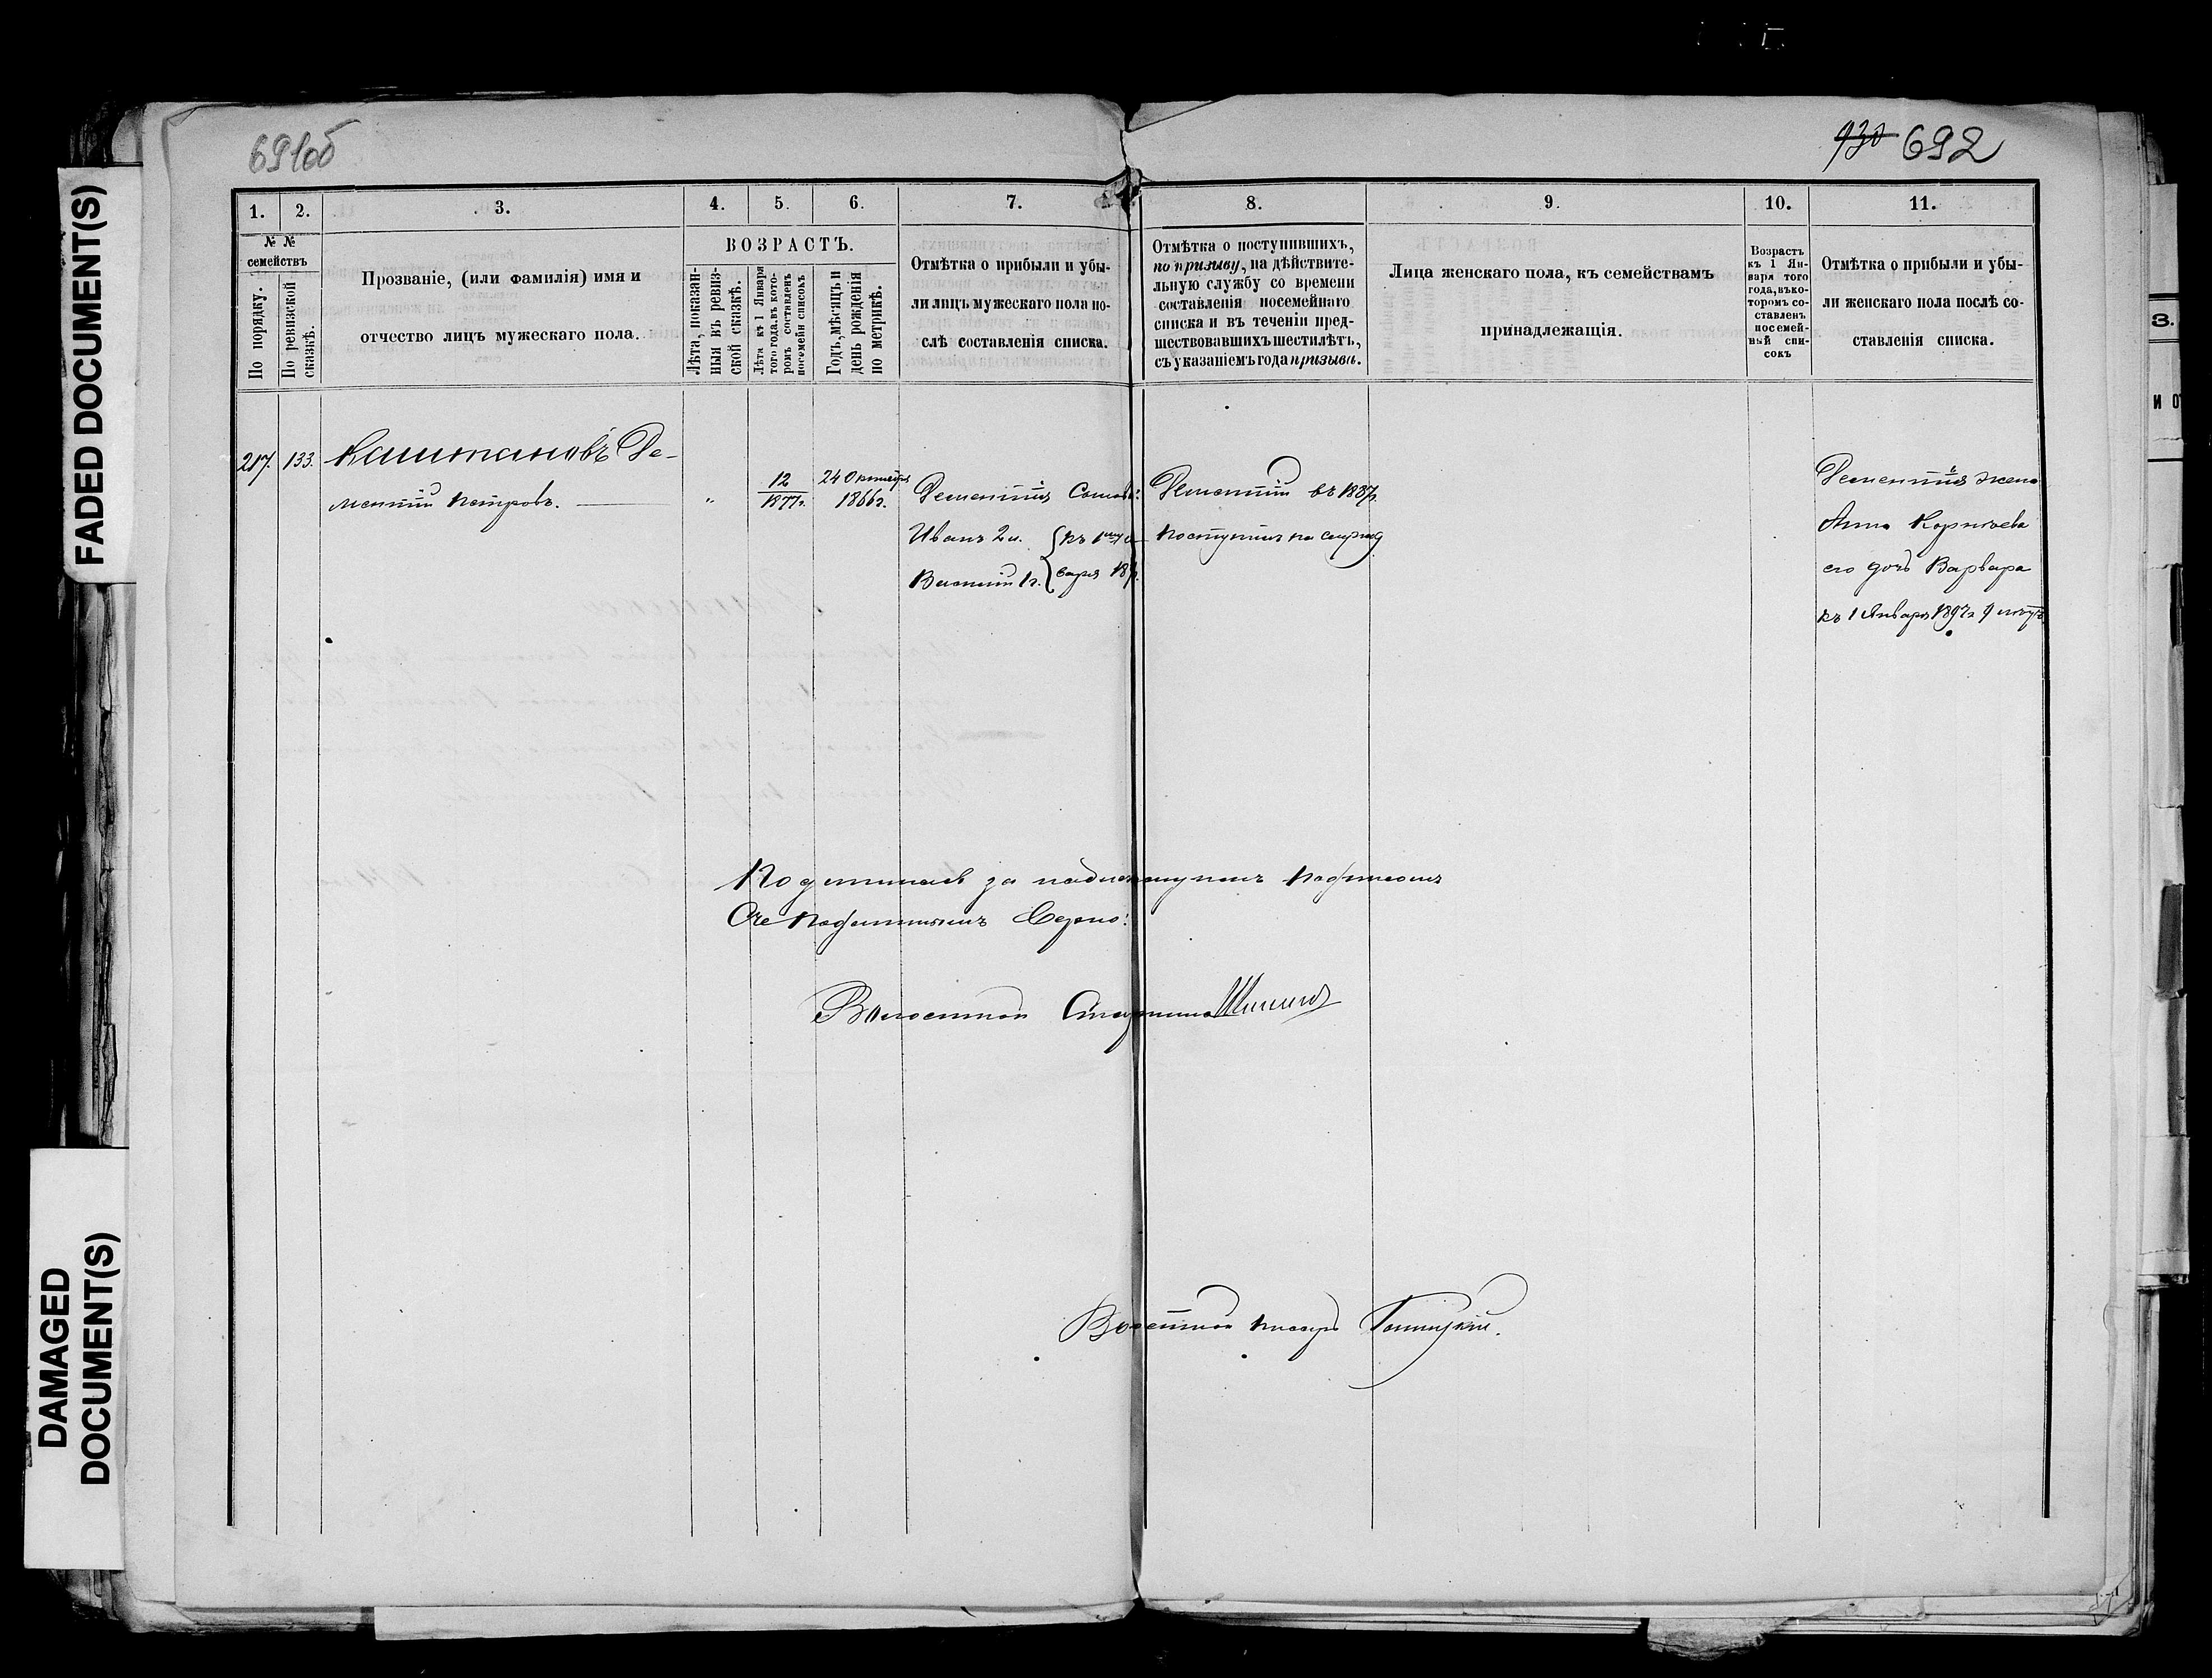 691об
930 692
1. 2. 3. 4. 5. 6. 7. 8. 9. 10. 11.
№ №
семействъ
По порядку.
По ревизской
сказкѣ.
Прозваніе, (или фамилія) имя и
отчество лицъ мужескаго пола.
ВОЗРАСТЪ.
Лѣта, показан-
ныя въ ревиз-
ской сказкѣ.
Лѣта къ 1 Января
того года, въ кото-
ромъ составленъ
посемейн списокъ
Годъ, мѣсяцъ и
день рожденія
по метрикѣ.
Отмѣтка о прибыли и убы-
ли лицъ мужескаго пола по-
слѣ составленія списка.
Отмѣтка о поступившихъ,
по призыву, на дѣйствите-
льную службу со времени
составленія посемейнаго
списка и въ теченіи пред-
шествовавшихъ шестилѣтъ,
съ указаніемъ года призыва.
Лица женскаго пола, къ семействамъ
принадлежащія.
Возрастъ
къ 1 Ян-
варя того
года, въ ко-
торомъ со-
ставленъ
посемей-
ный спи-
сокъ
Отмѣтка о прибыли и убы-
ли женскаго пола послѣ со-
ставленія списка.
217. 133. Каштановъ Де-
ментій Петровъ. "
12
1877г.
24 Октября
1866г.
Дементія Сыновь:
Иванъ 2 л. къ 1му Ян-
Василій 1 г. варя 18
Дементій въ 1887г.
поступилъ на службу
Дементія жена
Анна Корнѣева
его дочь Варвара
къ 1 Января 1897г 9 лѣтъ
Волостной Старшина
Волостной писарь
FADED DOCUMENT(S)
DAMAGED
DOCUMENT(S)
3.
И О